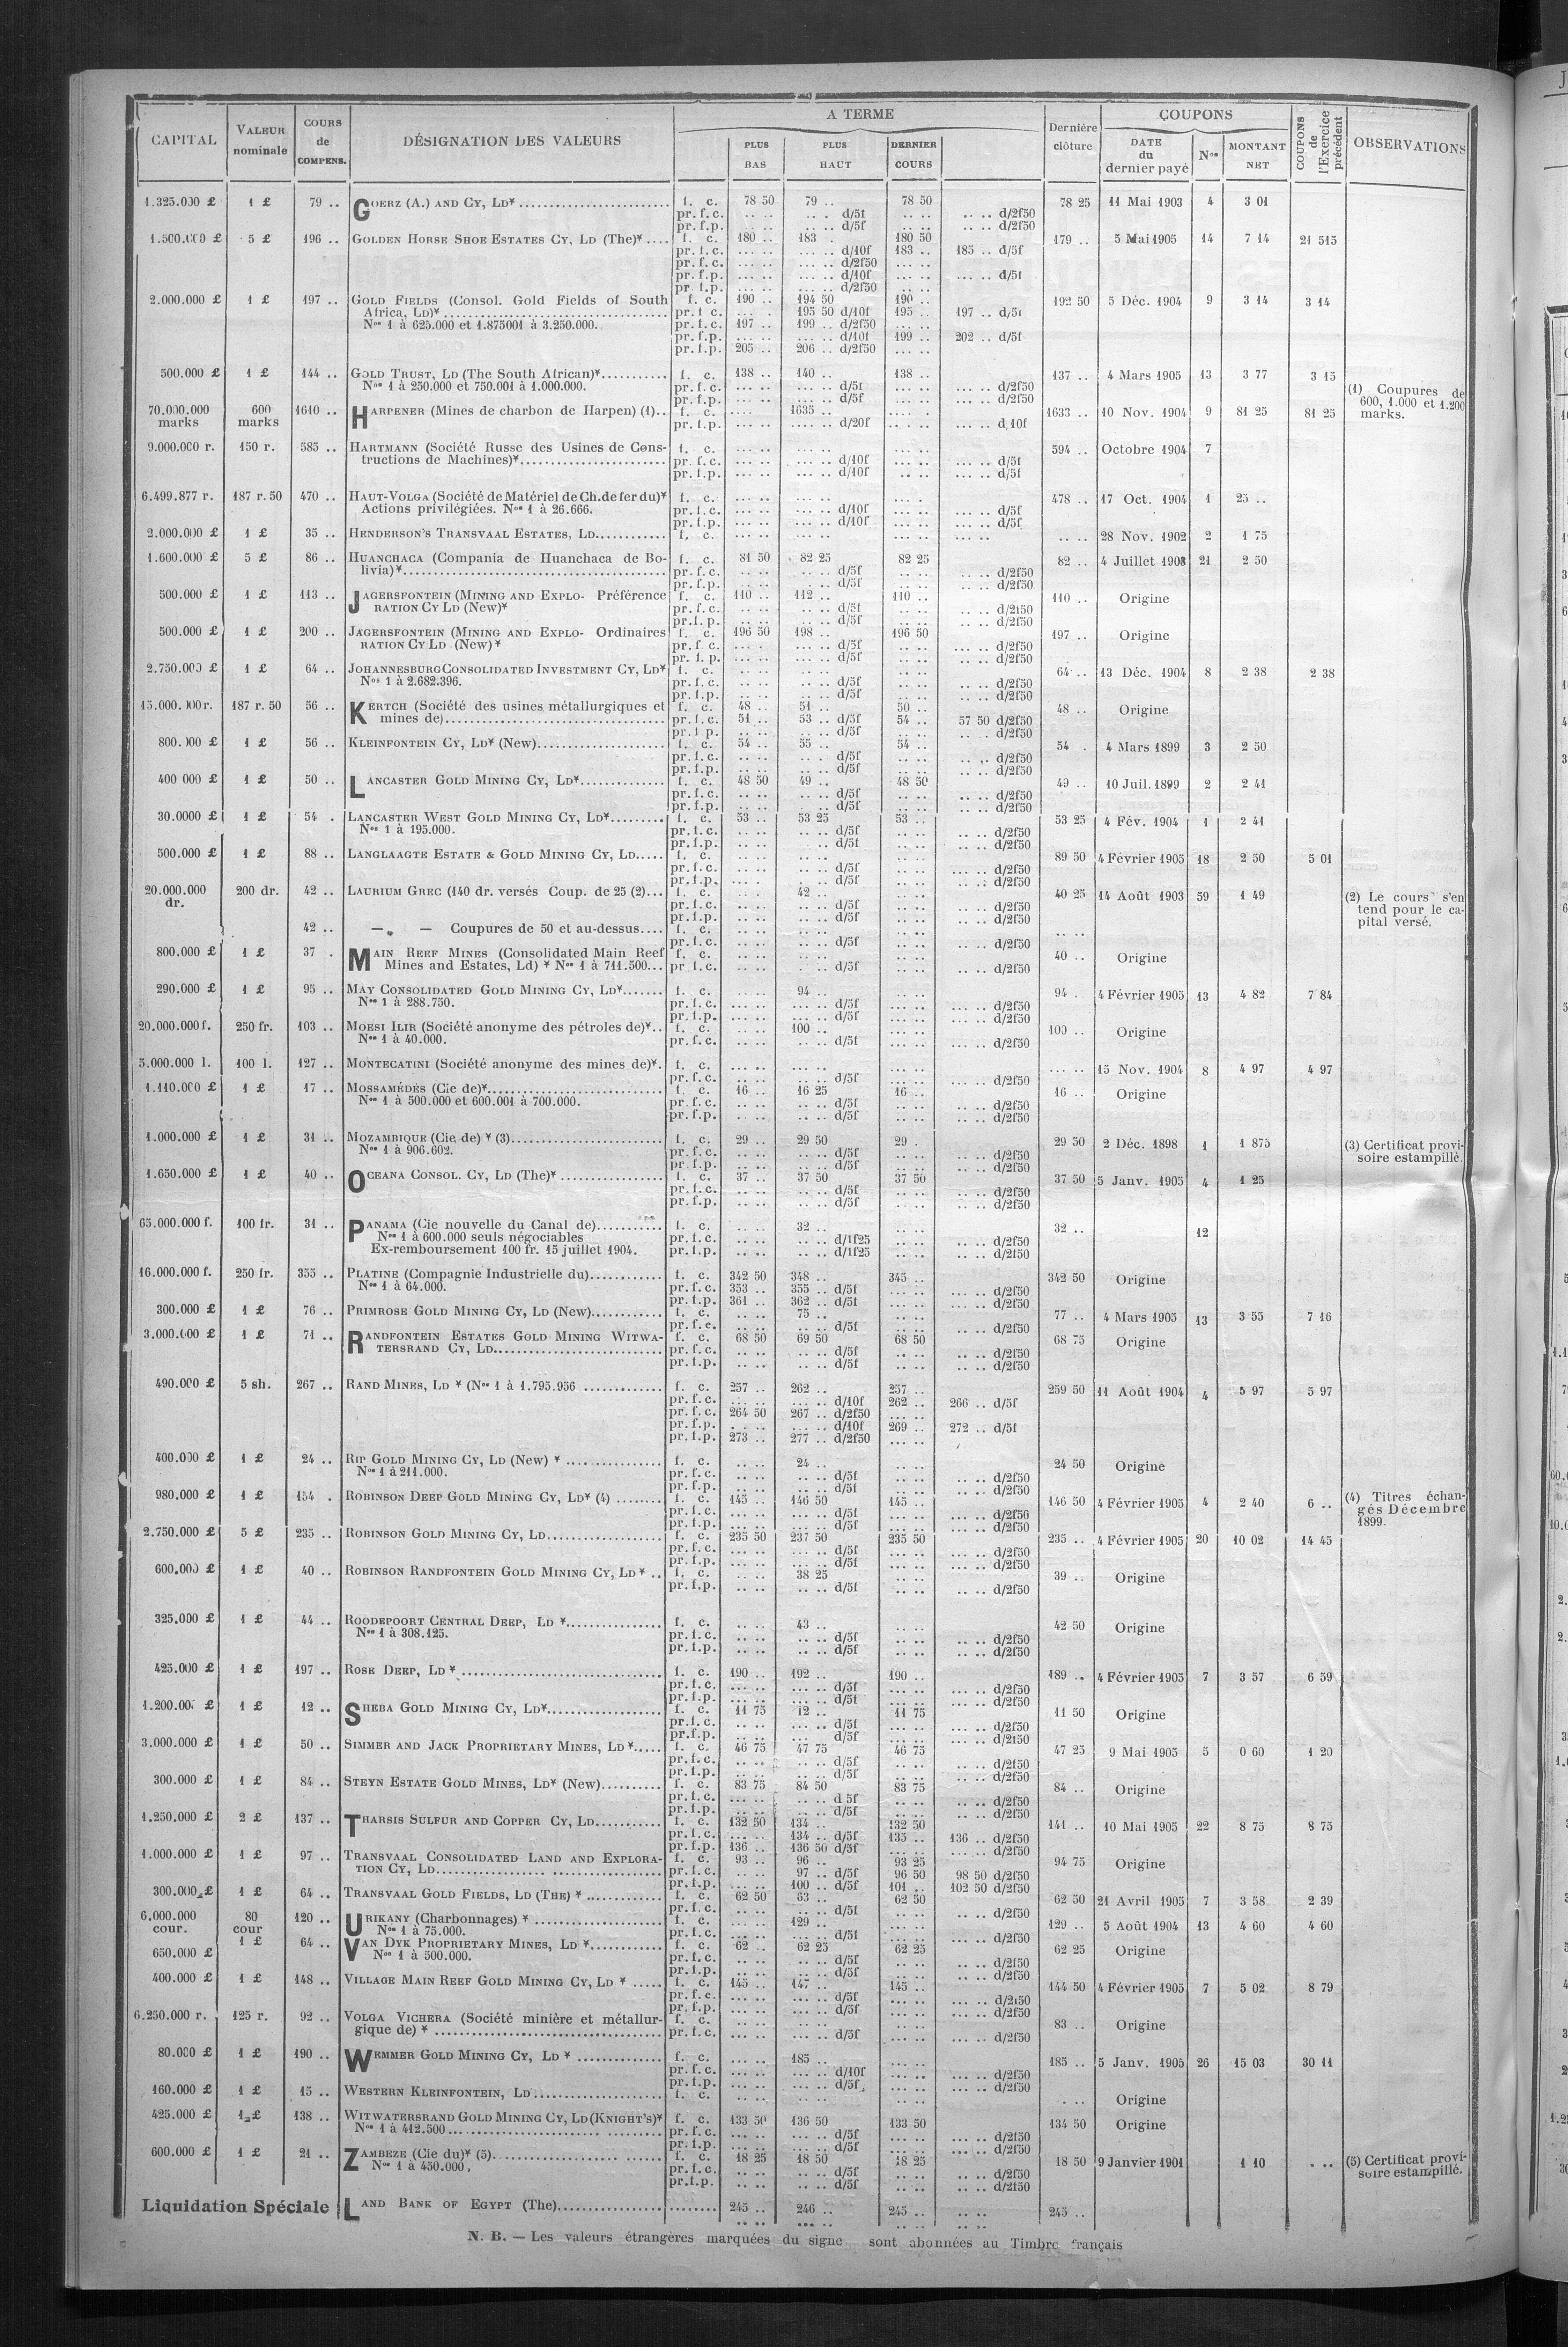 A TERME
COUPONS
CAPITAL VALEUR nominale COURS de COMPENS. DÉSIGNATION DES VALEURS PLUS BAS PLUS HAUT DERNIER COURS Dernière clôture DATE du dernier payé Nos MONTANT NET COUPONS de l'Exercice précédent OBSERVATIONS
1.325.000 £ 1 £ 79 .. GOERZ (A.) AND CY, LD* f. c. 78 50 79 .. 78 50 78 25 11 Mai 1903 4 3 01
pr. f. c. .. .. .. . d/5f .. .. .. .. d/2f50
pr. f.p. .. .. .. .. d/5f .. .. .. .. d/2f50
1.500.000 £ 5 £ 196 .. GOLDEN HORSE SHOE ESTATES CY, LD (The)* f. c. 180 .. 183 . 180 50 179 .. 5 Mai 1905 14 7 14 21 515
pr. f.c. ... .. ... .. d/10f 183 .. 185 .. d/5f
pr. f. c. ... .. ... .. d/2f50 ... ..
pr. f.p. ... .. ... .. d/10f ... .. ... .. d/5f
pr f.p. ... .. ... .. d/2f50 ... ..
2.000.000 £ 1 £ 197 .. GOLD FIELDS (Consol. Gold Fields of South f. c. 190 .. 194 50 190 .. 192 50 5 Déc. 1904 9 3 14 3 14
Africa, LD)* pr. f c. ... . 195 50 d/10f 195 .. 197 .. d/5f
Nos 1 à 625.000 et 1.875001 à 3.250.000. pr. f.c. 197 .. 199 .. d/2f50 ... ..
pr. f.p. ... .. ... .. d/10f 199 .. 202 .. d/5f
pr. f.p. 205 .. 206 .. d/2f50 ... ..
500.000 £ 1 £ 144 .. GOLD TRUST, LD (The South African)* f. c. 138 .. 140 .. 138 .. 137 .. 4 Mars 1905 13 3 77 3 15
Nos 1 à 250.000 et 750.001 à 1.000.000. pr. f. c. ... .. ... .. d/5f ... .. ... .. d/2f50 (1) Coupures de
pr. f.p. ... .. ... .. d/5f ... .. ... .. d/2f50 600, 1.000 et 1.200
70.000.000 marks 600 marks 1610 .. HARPENER (Mines de charbon de Harpen) (1).. f. c. .... .. 1635 .. .... .. 1633 .. 10 Nov. 1904 9 81 25 81 25 marks.
pr. f.p. .... .. .... .. d/20f .. .. .. d.10f
9.000.000 r. 150 r. 585 .. HARTMANN (Société Russe des Usines de Cons- f. c. ... .. ... .. ... .. 594 .. Octobre 1904 7
tructions de Machines)* pr. f. c. ... .. ... .. d/10f ... .. ... .. d/5f
pr. f.p. ... .. ... .. d/10f ... .. ... .. d/5f
6.499.877 r. 187 r. 50 470 .. HAUT-VOLGA (Société de Matériel de Ch. de fer du)* f. c. ... .. ... .. ... . 478 .. 17 Oct. 1904 1 25 ..
Actions privilégiées. Nos 1 à 26.666. pr. f.c. ... .. ... .. d/10f ... .. ... .. d/5f
pr. f.p. ... .. ... .. d/10f ... .. ... .. d/5f
2.000.000 £ 1 £ 35 .. HENDERSON'S TRANSVAAL ESTATES, LD f. c. ... .. ... .. ... .. 28 Nov. 1902 2 1 75
1.600.000 £ 5 £ 86 .. HUANCHACA (Compania de Huanchaca de Bo- f. c. 81 50 82 25 82 25 82 .. 4 Juillet 1903 21 2 50
livia)* pr. f. c. .. .. .. .. d/5f .. .. .. .. d/2f50
pr. f.p. .. .. .. .. d/5f .. .. .. .. d/2f50
500.000 £ 1 £ 113 .. JAGERSFONTEIN (MINING AND EXPLO- Préférence f. c. 110 .. 112 .. 110 .. 110 .. Origine
RATION CY LD (New)* pr. f. c. .. .. .. .. d/5f .. .. .. .. d/2f50
pr. f. p. .. .. .. .. d/5f .. .. .. .. d/2f50
500.000 £ 1 £ 200 .. JAGERSFONTEIN (MINING AND EXPLO- Ordinaires f. c. 196 50 198 .. 196 50 197 .. Origine
RATION CY LD (New)* pr. f. c. ... . .. .. d/5f .. .. ... .. d/2f50
pr. f. p. .. .. .. .. d/5f .. .. .. .. d/2f50
2.750.000 £ 1 £ 64 .. JOHANNESBURG CONSOLIDATED INVESTMENT CY, LD* f. c. .. .. .. .. .. .. 64 .. 13 Déc. 1904 8 2 38 2 38
Nos 1 à 2.682.396. pr. f.c. .. .. .. .. d/5f .. .. .. .. d/2f50
pr. f.p. .. .. .. .. d/5f .. .. .. .. d/2f50
15.000.000 r. 187 r. 50 56 .. KERTCH (Société des usines métallurgiques et f. c. 48 .. 51 .. 50 .. 48 .. Origine
mines de) pr. f. c. 51 .. 53 .. d/5f 54 .. 57 50 d/2f50
pr. f p. .. .. .. .. d/5f .. .. .. .. d/2f50
800.000 £ 1 £ 56 .. KLEINFONTEIN CY, LD* (New) f. c. 54 .. 55 .. 54 .. 54 . 4 Mars 1899 3 2 50
pr. f.c. .. .. .. .. d/5f .. .. .. .. d/2f50
pr. f.p. .. .. .. .. d/5f .. .. .. .. d/2f50
400 000 £ 1 £ 50 .. LANCASTER GOLD MINING CY, LD* f. c. 48 50 49 .. 48 50 49 .. 10 Juil. 1899 2 2 41
pr. f.c. .. .. .. .. d/5f .. .. .. .. d/2f50
pr. f.p. .. .. .. .. d/5f .. .. .. .. d/2f50
30.0000 £ 1 £ 54 . LANCASTER WEST GOLD MINING CY, LD* f. c. 53 .. 53 25 53 .. 53 25 4 Fév. 1904 1 2 41
Nos 1 à 195.000. pr. f.c. .. .. .. .. d/5f .. .. .. .. d/2f50
pr. f.p. .. .. .. .. d/5f .. .. .. .. d/2f50
500.000 £ 1 £ 88 .. LANGLAAGTE ESTATE & GOLD MINING CY, LD f. c. .. .. .. .. .. .. 89 50 4 Février 1905 18 2 50 5 01
pr. f.c. .. .. .. .. d/5f .. .. .. .. d/2f50
pr. f.p. ... . .. .. d/5f .. .. .. .. d/2f50
20.000.000 dr. 200 dr. 42 .. LAURIUM GREC (140 dr. versés Coup. de 25 (2)... f. c. .. .. 42 .. .. .. 40 25 14 Août 1903 59 1 49 (2) Le cours s'en
pr. f.c. .. .. .. .. d/5f .. .. .. .. d/2f50 tend pour le ca-
pr. f.p. .. .. .. .. d/5f .. .. .. .. d/2f50 pital versé.
42 .. — — Coupures de 50 et au-dessus.... f. c. .. .. .. .. .. .. .. ..
pr. f.c. .. .. .. .. d/5f .. .. .. .. d/2f50
800.000 £ 1 £ 37 . MAIN REEF MINES (Consolidated Main Reef f. c. .. .. .. .. .. .. 40 .. Origine
Mines and Estates, Ld) * Nos 1 à 711.500... pr f.c. .. .. .. .. d/5f .. .. .. .. d/2f50
290.000 £ 1 £ 95 .. MAY CONSOLIDATED GOLD MINING CY, LD* f. c. .. .. 94 .. .. .. 94 . 4 Février 1905 13 4 82 7 84
Nos 1 à 288.750. pr. f.c. ... .. ... .. d/5f ... .. ... .. d/2f50
pr. f.p. ... .. ... .. d/5f ... .. ... .. d/2f50
20.000.000 f. 250 fr. 103 .. MOESI ILIR (Société anonyme des pétroles de)*.. f. c. .. .. 100 .. .. .. 100 .. Origine
Nos 1 à 40.000. pr. f.c. .. .. .. .. d/5f .. .. ... .. d/2f50
5.000.000 l. 100 l. 127 .. MONTECATINI (Société anonyme des mines de)*. f. c. ... .. ... .. ... .. ... .. 15 Nov. 1904 8 4 97 4 97
pr. f.c. .. .. .. .. d/5f ... .. ... .. d/2f50
1.110.000 £ 1 £ 17 .. MOSSAMÉDÈS (Cie de)* f. c. 16 .. 16 25 16 .. 16 .. Origine
Nos 1 à 500.000 et 600.001 à 700.000. pr. f.c. .. .. .. .. d/5f .. .. .. .. d/2f50
pr. f.p. .. .. .. .. d/5f .. .. .. .. d/2f50
1.000.000 £ 1 £ 31 .. MOZAMBIQUE (Cie de) * (3) f. c. 29 .. 29 50 29 . 29 50 2 Déc. 1898 1 1 875 (3) Certificat provi-
Nos 1 à 906.602. pr. f.c. .. .. .. .. d/5f .. .. .. .. d/2f50 soire estampillé.
pr. f.p. .. .. .. .. d/5f .. .. .. .. d/2f50
1.650.000 £ 1 £ 40 .. OCEANA CONSOL. CY, LD (The)* f. c. 37 .. 37 50 37 50 37 50 5 Janv. 1905 4 1 25
pr. f.c. .. .. .. .. d/5f .. .. .. .. d/2f50
pr. f.p. .. .. .. .. d/5f .. .. .. .. d/2f50
65.000.000 f. 100 fr. 31 .. PANAMA (Cie nouvelle du Canal de) f. c. .. .. 32 .. .. .. 32 .. 12
Nos 1 à 600.000 seuls négociables pr. f.c. .. .. .. .. d/1f25 .. .. .. .. d/2f50
Ex-remboursement 100 fr. 15 juillet 1904. pr. f.p. .. .. .. .. d/1f25 .. .. .. .. d/2f50
16.000.000 f. 250 fr. 355 .. PLATINE (Compagnie Industrielle du) f. c. 342 50 348 .. 345 .. 342 50 Origine
Nos 1 à 64.000. pr. f.c. 353 .. 355 .. d/5f ... .. ... .. d/2f50
pr. f.p. 361 .. 362 .. d/5f ... .. ... .. d/2f50
300.000 £ 1 £ 76 .. PRIMROSE GOLD MINING CY, LD (New) f. c. .. .. 75 .. .. .. 77 .. 4 Mars 1905 13 3 55 7 16
pr. f.c. .. .. .. .. d/5f .. .. .. .. d/2f50
3.000.000 £ 1 £ 71 .. RANDFONTEIN ESTATES GOLD MINING WITWA- f. c. 68 50 69 50 68 50 68 75 Origine
TERSRAND CY, LD pr. f.c. .. .. .. .. d/5f .. .. .. .. d/2f50
pr. f.p. .. .. .. .. d/5f .. .. .. .. d/2f50
490.000 £ 5 sh. 267 .. RAND MINES, LD * (Nos 1 à 1.795.956 f. c. 257 .. 262 .. 257 .. 259 50 11 Août 1904 4 5 97 5 97
pr. f.c. ... .. ... .. d/10f 262 .. 266 .. d/5f
pr. f.c. 264 50 267 .. d/2f50 ... ..
pr. f.p. . . .. ... .. d/10f 269 .. 272 .. d/5f
pr. f.p. 273 .. 277 .. d/2f50 ... ..
400.000 £ 1 £ 24 .. RIP GOLD MINING CY, LD (New) * f. c. .. .. 24 .. .. .. 24 50 Origine
Nos 1 à 211.000. pr. f.c. .. .. .. .. d/5f .. .. .. .. d/2f50
pr. f.p. .. .. .. .. d/5f .. .. .. .. d/2f50
980.000 £ 1 £ 154 . ROBINSON DEEP GOLD MINING CY, LD* (4) f. c. 145 .. 146 50 145 .. 146 50 4 Février 1905 4 2 40 6 .. (4) Titres échan-
pr. f.c. ... .. ... .. d/5f ... .. ... .. d/2f50 gés Décembre
pr. f.p. ... .. ... .. d/5f ... .. ... .. d/2f50 1899.
2.750.000 £ 5 £ 235 .. ROBINSON GOLD MINING CY, LD f. c. 235 50 237 50 235 50 235 .. 4 Février 1905 20 10 02 14 45
pr. f.c. ... .. ... .. d/5f ... .. ... .. d/2f50
pr. f.p. ... .. ... .. d/5f ... .. ... .. d/2f50
600.000 £ 1 £ 40 .. ROBINSON RANDFONTEIN GOLD MINING CY, LD * .. f. c. .. .. 38 25 .. .. 39 .. Origine
pr. f.p. .. .. .. .. d/5f .. .. ... .. d/2f50
325.000 £ 1 £ 44 .. ROODEPOORT CENTRAL DEEP, LD * f. c. .. .. 43 .. .. .. 42 50 Origine
Nos 1 à 308.125. pr. f.c. .. .. .. .. d/5f .. .. .. .. d/2f50
pr. f.p. .. .. .. .. d/5f .. .. .. .. d/2f50
425.000 £ 1 £ 197 .. ROSE DEEP, LD * f. c. 190 .. 192 .. 190 .. 189 .. 4 Février 1905 7 3 57 6 59
pr. f.c. ... .. ... .. d/5f ... .. ... .. d/2f50
pr. f.p. ... .. ... .. d/5f ... .. ... .. d/2f50
1.200.00 £ 1 £ 12 .. SHEBA GOLD MINING CY, LD* f. c. 11 75 12 .. 11 75 11 50 Origine
pr. f.c. .. .. .. .. d/5f ... .. ... .. d/2f50
pr. f.p. .. .. .. .. d/5f ... .. ... .. d/2f50
3.000.000 £ 1 £ 50 .. SIMMER AND JACK PROPRIETARY MINES, LD * f. c. 46 75 47 75 46 75 47 25 9 Mai 1905 5 0 60 1 20
pr. f.c. .. .. .. .. d/5f ... .. ... .. d/2f50
pr. f.p. .. .. .. .. d/5f ... .. ... .. d/2f50
300.000 £ 1 £ 84 .. STEYN ESTATE GOLD MINES, LD* (New) f. c. 83 75 84 50 83 75 84 .. Origine
pr. f.c. ... .. .. .. d 5f ... .. ... .. d/2f50
pr. f.p. .. .. .. .. d/5f ... .. ... .. d/2f50
1.250.000 £ 2 £ 137 .. THARSIS SULFUR AND COPPER CY, LD f. c. 132 50 134 .. 132 50 141 .. 10 Mai 1905 22 8 75 8 75
pr. f.c. ... .. 134 .. d/5f 135 .. 136 .. d/2f50
pr. f.p. 136 .. 136 50 d/5f ... .. ... .. d/2f50
1.000.000 £ 1 £ 97 .. TRANSVAAL CONSOLIDATED LAND AND EXPLORA- f. c. 93 .. 96 .. 93 25 94 75 Origine
TION CY, LD pr. f.c. .. .. 97 .. d/5f 96 50 98 50 d/2f50
pr. f.p. ... .. 100 .. d/5f 101 .. 102 50 d/2f50
300.000 £ 1 £ 64 .. TRANSVAAL GOLD FIELDS, LD (THE) * f. c. 62 50 63 .. 62 50 62 50 21 Avril 1905 7 3 58 2 39
pr. f.c. .. .. .. .. d/5f .. .. .. .. d/2f50
6.000.000 cour. 80 cour 120 .. URIKANY (Charbonnages) * f. c. ... .. 129 .. ... .. 129 .. 5 Août 1904 13 4 60 4 60
Nos 1 à 75.000. pr. f.c. ... .. ... .. d/5f ... .. ... .. d/2f50
650.000 £ 1 £ 64 .. VAN DYK PROPRIETARY MINES, LD * f. c. 62 .. 62 25 62 25 62 25 Origine
Nos 1 à 500.000. pr. f.c. .. .. .. .. d/5f .. .. .. .. d/2f50
pr. f.p. .. .. .. .. d/5f .. .. .. .. d/2f50
400.000 £ 1 £ 148 .. VILLAGE MAIN REEF GOLD MINING CY, LD * f. c. 145 .. 147 .. 145 .. 144 50 4 Février 1905 7 5 02 8 79
pr. f.c. ... .. ... .. d/5f ... .. ... .. d/2f50
pr. f.p. ... .. ... .. d/5f ... .. ... .. d/2f50
6.250.000 r. 125 r. 92 .. VOLGA VICHERA (Société minière et métallur- f. c. ... .. ... .. ... .. 83 .. Origine
gique de) * pr. f.c. ... .. ... .. d/5f ... .. ... .. d/2f50
80.000 £ 1 £ 190 .. WEMMER GOLD MINING CY, LD * f. c. ... .. 185 .. ... .. 185 .. 5 Janv. 1905 26 15 03 30 11
pr. f.c. ... .. ... .. d/10f ... .. ... .. d/2f50
pr. f.p. ... .. ... .. d/5f ... .. ... .. d/2f50
160.000 £ 1 £ 15 .. WESTERN KLEINFONTEIN, LD f. c. .. .. .. .. .. .. . .. Origine
425.000 £ 1 £ 138 .. WITWATERSRAND GOLD MINING CY, LD (KNIGHT'S)* f. c. 133 50 136 50 133 50 134 50 Origine
Nos 1 à 412.500 pr. f.c. ... .. ... .. d/5f ... .. ... .. d/2f50
pr. f.p. ... .. ... .. d/5f ... .. ... .. d/2f50
600.000 £ 1 £ 21 .. ZAMBEZE (Cie du)* (5) f. c. 18 25 18 50 18 25 18 50 9 Janvier 1901 1 10 . .. (5) Certificat provi-
Nos 1 à 450.000, pr. f.c. .. .. .. .. d/5f .. .. .. .. d/2f50 soire estampillé.
pr. f.p. .. .. .. .. d/5f .. .. .. .. d/2f50
Liquidation Spéciale LAND BANK OF EGYPT (The) 245 .. 246 .. 245 .. .. .. 245 ..
N. B. — Les valeurs étrangères marquées du signe sont abonnées au Timbre français